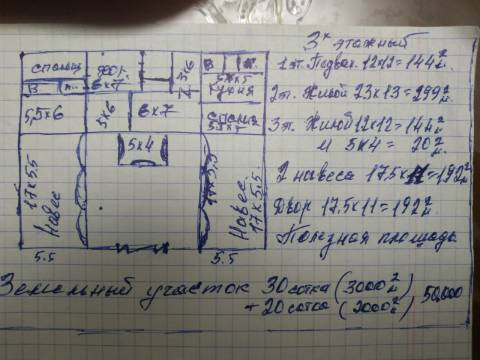 3х этажный
1 эт. Подвал. 12x12 = 144 м²
2 эт. Жилой 23x13 = 299 м²
3 эт. Жилой 12x12 = 144 м²
и 5x4 = 20 м²
2 навеса 17.5x11 = 192 м²
Двор 17.5x11 = 192 м²
Полезная площадь
спальня
6x7
3x6
В
В
5,5x6
5x6
6x7
Кухня
спальня
5x4
17x5.5
Навес
17x5,5
Навес
17x5.5
5.5
5.5
Земельный участок 30 сотка (3000 м²)
+ 20 сотка (2000 м²) 50,000